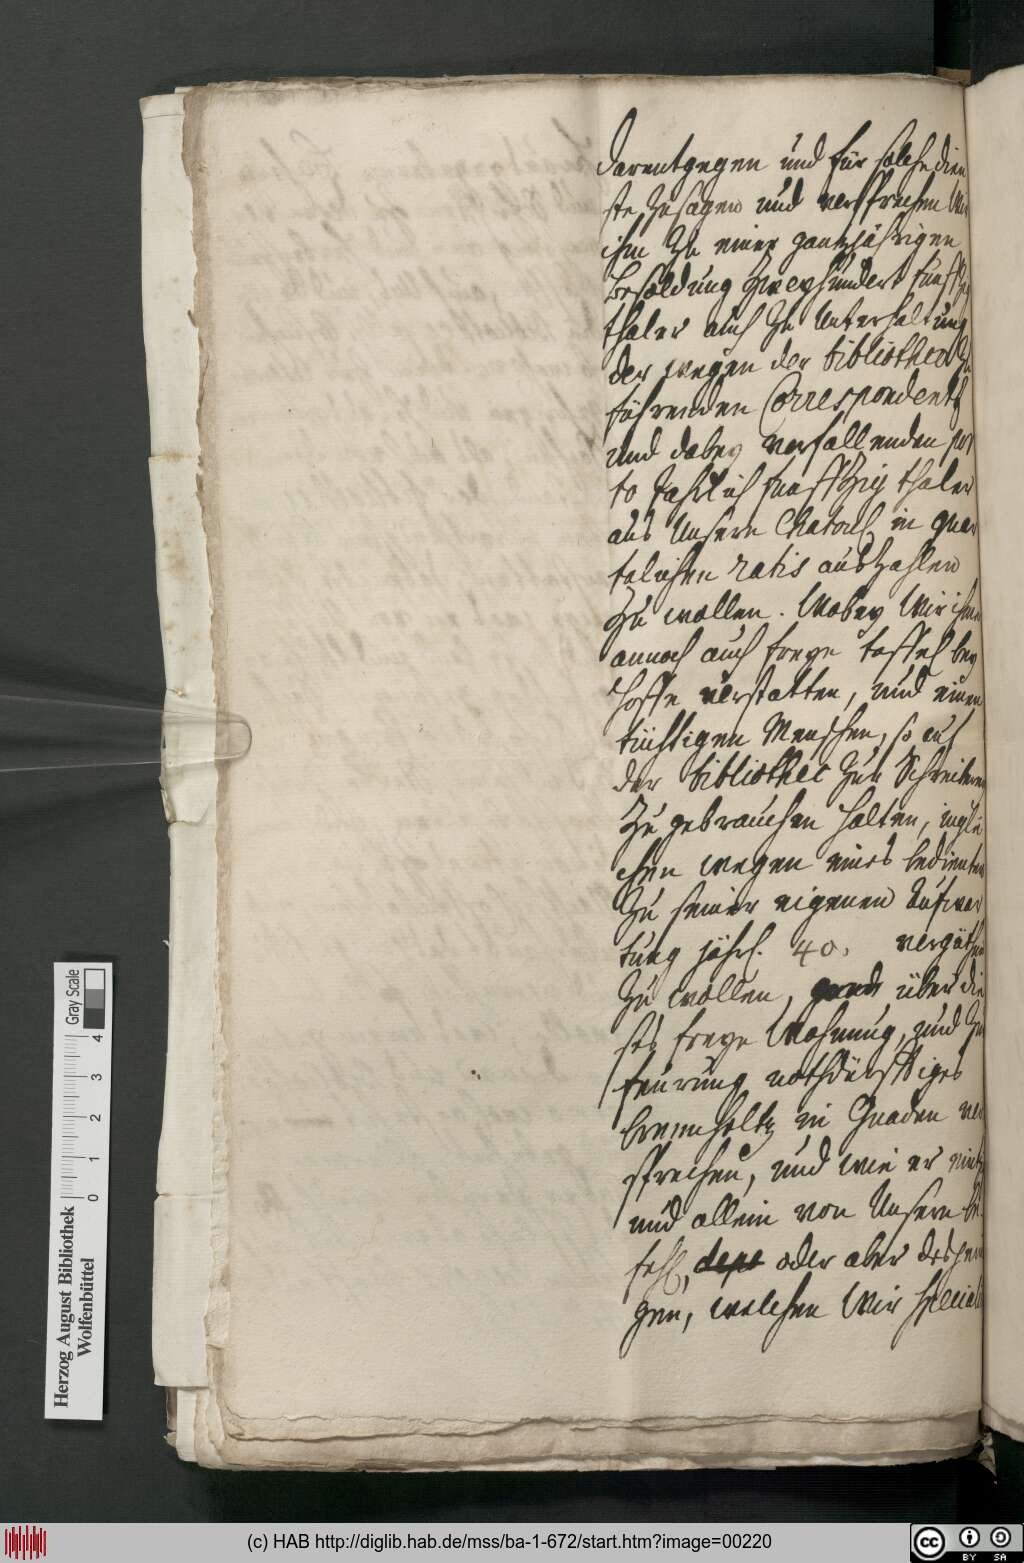 darentgegen und für solche dien
ste Zusagen und versprechen Wir
ihm Zu einer gantzjährigen
Besoldung Zweyhundert funfftzig
thaler auch Zu Unterhaltung
der wegen der bibliothec Zu
führenden Correspondentz
und dabey vorfallenden por
to Jahrlich funfftzig thaler
aus Unsere Chatoul in quar
talichen ratis ausZahlen
Zu wollen. Wobey Wir ihm
annoch auch freye taffel bey
Hoffe verstatten, und einen
tüchtigen Menschen, so auf
der bibliothec Zur Schreiberey
Zu gebrauchen halten, inglei
chen wegen eines bedienten
Zu seiner eigenen Aufwar
tung jährl. 40. vergüthen
Zu wollen, über die
ses freye Wohnung, und Zu
feurung nothdürfftiges
brennholtz in Gnaden ver
sprechen, und wie er
und allein von Unsern be
fehl, oder aber desjeni
gen, welchen Wir speciali
Herzog August Bibliothek
Wolfenbüttel
0 1 2 3 4
Gray Scale
(c) HAB http://diglib.hab.de/mss/ba-1-672/start.htm?image=00220
cc BY SA